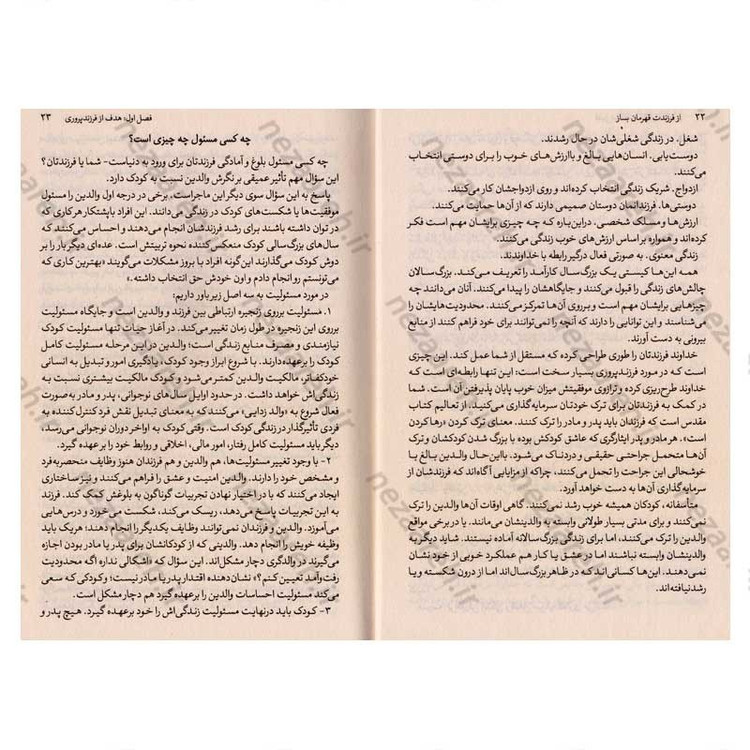 ۲۲ از فرزندت قهرمان بساز
شغل. در زندگی شغلی‌شان در حال رشدند.
دوست‌یابی. انسان‌هایی بالغ و باارزش‌های خوب را برای دوستی انتخاب
می‌کنند.
ازدواج. شریک زندگی انتخاب کرده‌اند و روی ازدواجشان کار می‌کنند.
دوستی‌ها. فرزندانمان دوستان صمیمی دارند که از آن‌ها حمایت می‌کنند.
ارزش‌ها و مسلک شخصی. درباره‌ی که چه چیزی برایشان مهم است فکر
کرده‌اند و همواره بر اساس ارزش‌های خوب زندگی می‌کنند.
زندگی معنوی. به صورتی فعال درگیر رابطه با خداوندند.
همه این‌ها کیستی یک بزرگ‌سال کارآمد را تعریف می‌کند. بزرگ‌سالان
چالش‌های زندگی را قبول می‌کنند و جایگاهشان را پیدا می‌کنند. آنان می‌دانند چه
چیزهایی برایشان مهم است و بر روی آن‌ها تمرکز می‌کنند. محدودیت‌هایشان را
می‌شناسند و این توانایی را دارند که آنچه را نمی‌توانند برای خود فراهم کنند از منابع
بیرونی به دست آورند.
خداوند فرزندتان را طوری طراحی کرده که مستقل از شما عمل کند. این چیزی
است که در مورد فرزندپروری بسیار سخت است؛ این تنها رابطه‌ای است که
خداوند طرح‌ریزی کرده و ترازوی موفقیتش میزان خوب پایان پذیرفتن آن است. شما
در کمک به فرزندتان برای ترک خودتان سرمایه‌گذاری می‌کنید. از تعالیم کتاب
مقدس است که فرزندان باید پدر و مادر را ترک کنند. معنای ترک کردن «رها کردن
است». هر مادر و پدر ایثارگری که عاشق کودکش بوده با بزرگ شدن کودکشان و ترک
آن‌ها متحمل جراحتی حقیقی و دردناک می‌شود. بااین‌حال والدین بالغ با
خوشحالی این جراحت را تحمل می‌کنند، چراکه از مزایایی آگاه‌اند که فرزندشان از
سرمایه‌گذاری آن‌ها به دست خواهد آورد.
متأسفانه، کودکان همیشه خوب رشد نمی‌کنند. گاهی اوقات آن‌ها والدین را ترک
نمی‌کنند و برای مدتی بسیار طولانی وابسته به والدینشان می‌مانند. یا در برخی مواقع
والدین را ترک می‌کنند، اما برای زندگی بزرگ‌سالانه آماده نیستند. شاید دیگر به
والدینشان وابسته نباشند اما در عشق یا کار هم عملکرد خوبی از خود نشان
نمی‌دهند. این‌ها کسانی‌اند که در ظاهر بزرگ‌سال‌اند اما از درون شکسته و یا
رشدنیافته‌اند.
فصل اول: هدف از فرزندپروری ۲۳
چه کسی مسئول چه چیزی است؟
چه کسی مسئول بلوغ و آمادگی فرزندتان برای ورود به دنیاست- شما یا فرزندتان؟
این سؤال مهم تأثیر عمیقی بر نگرش والدین نسبت به کودک دارد.
پاسخ به این سؤال سوی دیگر این ماجراست. برخی در درجه اول والدین را مسئول
موفقیت‌ها یا شکست‌های کودک در زندگی می‌دانند. این افراد باپشتکار هر کاری که
در توان داشته باشند برای رشد فرزندشان انجام می‌دهند و احساس می‌کنند که
سال‌های بزرگ‌سالی کودک منعکس‌کننده نحوه تربیتش است. عده‌ای دیگر بار را بر
دوش کودک می‌گذارند این‌گونه افراد با بروز مشکلات می‌گویند «بهترین کاری که
می‌تونستم رو انجام دادم و اون خودش حق انتخاب داشته.»
در مورد مسئولیت به سه اصل زیر باور داریم:
۱. مسئولیت بر روی زنجیره ارتباطی بین فرزند و والدین است و جایگاه مسئولیت
بر روی این زنجیر در طول زمان تغییر می‌کند. در آغاز حیات تنها مسئولیت کودک
نیازمندی و مصرف منابع زندگی است؛ والدین در این مرحله مسئولیت کامل
کودک را بر عهده دارند. با شروع ابراز وجود کودک و یادگیری امور و تبدیل به انسانی
خودکفاتر، مالکیت والدین کمتر می‌شود و کودک مالکیت بیشتری نسبت به
زندگی‌اش خواهد داشت. در حدود اوایل سال‌های نوجوانی، پدر و مادر به صورت
فعال شروع به «والد زدایی» می‌کنند که به معنای تبدیل نقش فرد کنترل کننده به
فردی تأثیرگذار در زندگی کودک است. وقتی کودک به اواخر دوران نوجوانی می‌رسد،
دیگر باید مسئولیت کامل رفتار، امور مالی، اخلاقی و روابط خود را بر عهده گیرد.
۲- با وجود تغییر مسئولیت‌ها، هم والدین و هم فرزندان هنوز وظایف منحصربه‌فرد
و مشخص خود را دارند. والدین امنیت و عشق را فراهم می‌کنند و نیز ساختاری
ایجاد می‌کنند که با در اختیار نهادن تجربیات گوناگون به بلوغش کمک کند. فرزند
به این تجربیات پاسخ می‌دهد، ریسک می‌کند، شکست می‌خورد و درس‌هایی
می‌آموزد. والدین و فرزندان نمی‌توانند وظایف یکدیگر را انجام دهند؛ هریک باید
وظیفه خویش را انجام دهد. والدینی که از کودکانشان برای پدر یا مادر بودن اجازه
می‌گیرند در والدگری دچار مشکل‌اند. این سؤال که «اشکالی نداره اگه محدودیت
رفت‌وآمد تعیین کنم؟» نشان‌دهنده اقتدار پدر یا مادر نیست؛ و کودکی که سعی
می‌کند مسئولیت احساسات والدین را بر عهده گیرد هم دچار مشکل است.
۳- کودک باید درنهایت مسئولیت زندگی‌اش را خود بر عهده گیرد. هیچ پدر و
nezaareh.ir